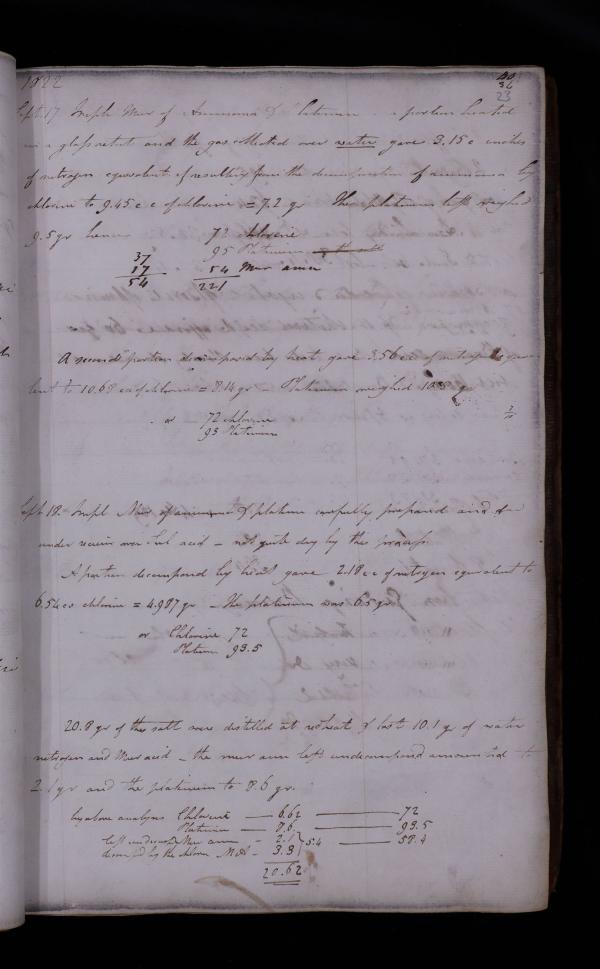 1822
40
36
23
Sept. 17. Triple Mur of Ammonia & Platinum - a portion heated
in a glass retort and the gas collected over water gave 3.15 c inches
of nitrogen equivalent if resulting from the decomposition of ammonia by
chlorine to 9.45 c c of chlorine = 7.2 gr The platinum left weighed
9.5 gr hence 72 chlorine
95 Platinum
37
17
54
54 Mur amm
221
A second portion decomposed by heat gave 3.56 c c of nitrogen equiva
lent to 10.68 c c of chlorine = 8.14 gr - Platinum weighed gr
or 72 chlorine
93 Platinum
Sept 18. Tripl Mur of ammonia & platina carefully prepared and
under receiver over Sul acid - not quite dry by the process.
A portion decomposed by heat gave 2.18 c c of nitrogen equivalent to
6.54 c c chlorine = 4.987 gr - the platinum was 6.5 gr
or Chlorine 72
Platinum 93.5
20.8 gr of the salt were distilled at heat & lost 10.1 gr of water
nitrogen and Mur acid - the mur amm left undecomposed amounted to
2.1 gr and the platinum to 8.6 gr.
by above analyses Chlorine — 6.62 — 72
Platinum — 8.6 — 93.5
left undecomp Mur amm - 2.1 } 5.4 — 58.4
decomposed by the chlorine M A - 3.3
20.62